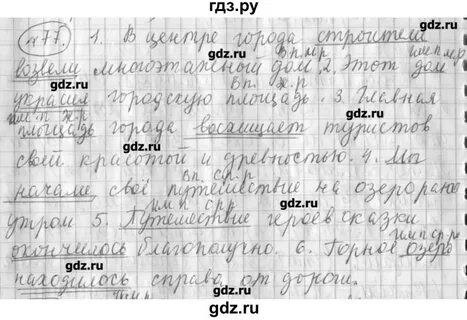 гдз.ру
№77. 1. В центре города строители
Вп. м.р им.п м.р
возвели многоэтажный дом. 2. Этот дом
Вп. ж.р
украсил городскую площадь. 3. Главная
им.п ж.р
площадь города восхищает туристов
своей красотой и древностью. 4. Мы
Вп. ср.р
начали своё путешествие на озеро рано
им.п ср.р
утром 5. Путешествие героев сказки
им.п ср.р
окончилось благополучно. 6. Горное озеро
находилось справа от дороги.
gdz.ru
gdz.ru
gdz.ru
gdz.ru
gdz.ru
gdz.ru
gdz.ru
gdz.ru
gdz.ru
гдз.ру